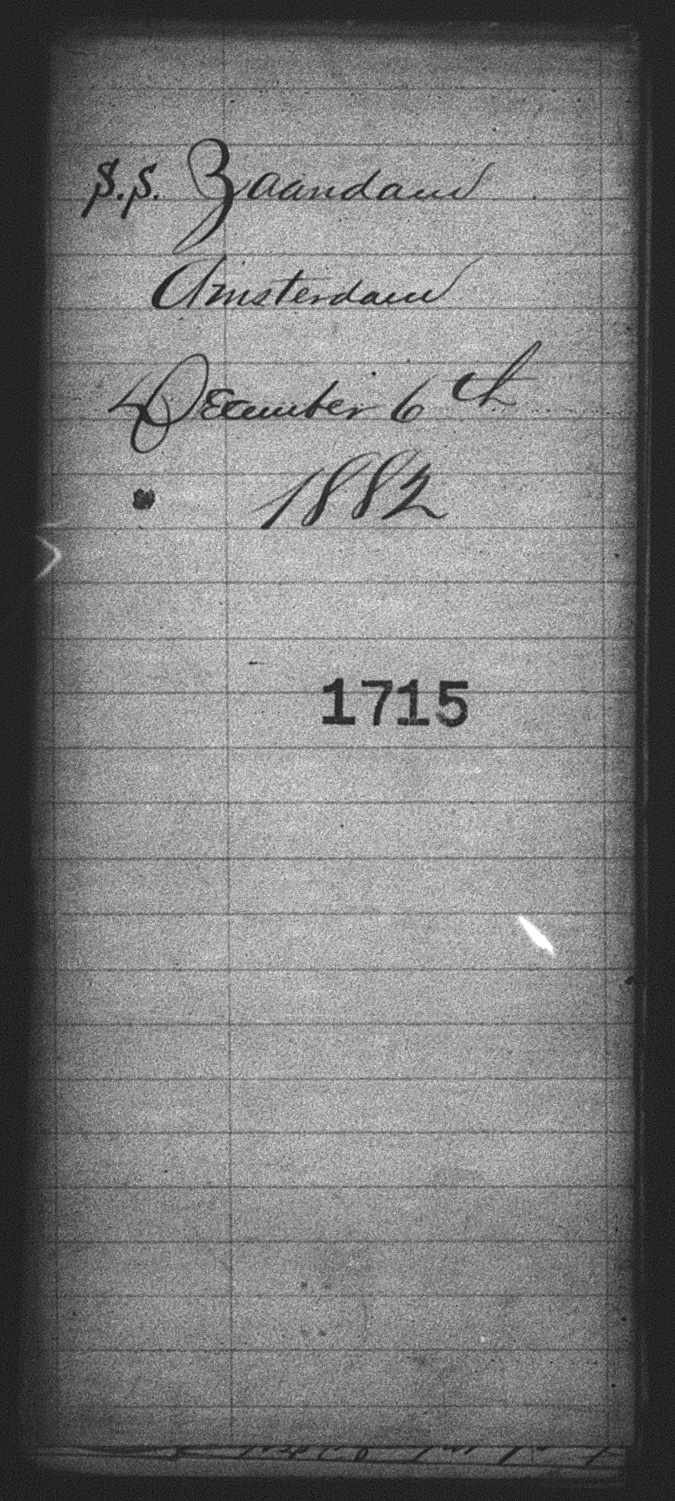 S.S. Zaandam
Amsterdam
December 6th
1882
1715